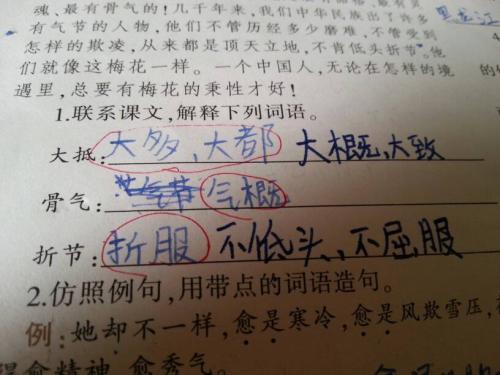 魂、最有骨气的!几千年来,我们中华民族出了许多
有气节的人物,他们不管历经多少磨难,不管受到
怎样的欺凌,从来都是顶天立地,不肯低头折节。他
们就像这梅花一样。一个中国人,无论在怎样的境
遇里,总要有梅花的秉性才好!
1.联系课文,解释下列词语。
大抵:大多、大都 大概、大致
骨气:气节 气概
折节:折服 不低头、不屈服
2.仿照例句,用带点的词语造句。
例:她却不一样,愈是寒冷,愈是风欺雪压,
愈精神,愈秀气。